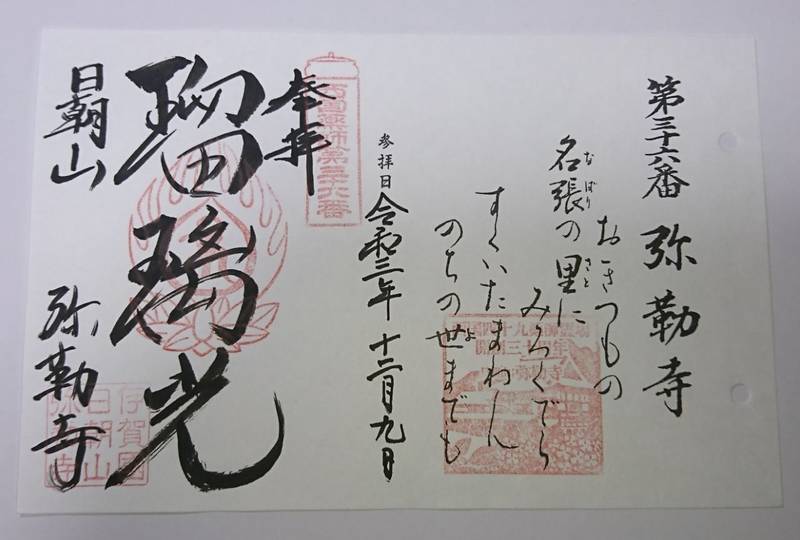 第三十六番 弥勒寺
おきつもの
名張の里に
なばり
さと
みろくでら
すくいたまわん
のちの世までも
よ
参拝日 令和三年 十二月九日
奉拝
西國薬師第三十六番
瑠璃光
日朝山 弥勒寺
伊賀國
日朝山
弥勒寺